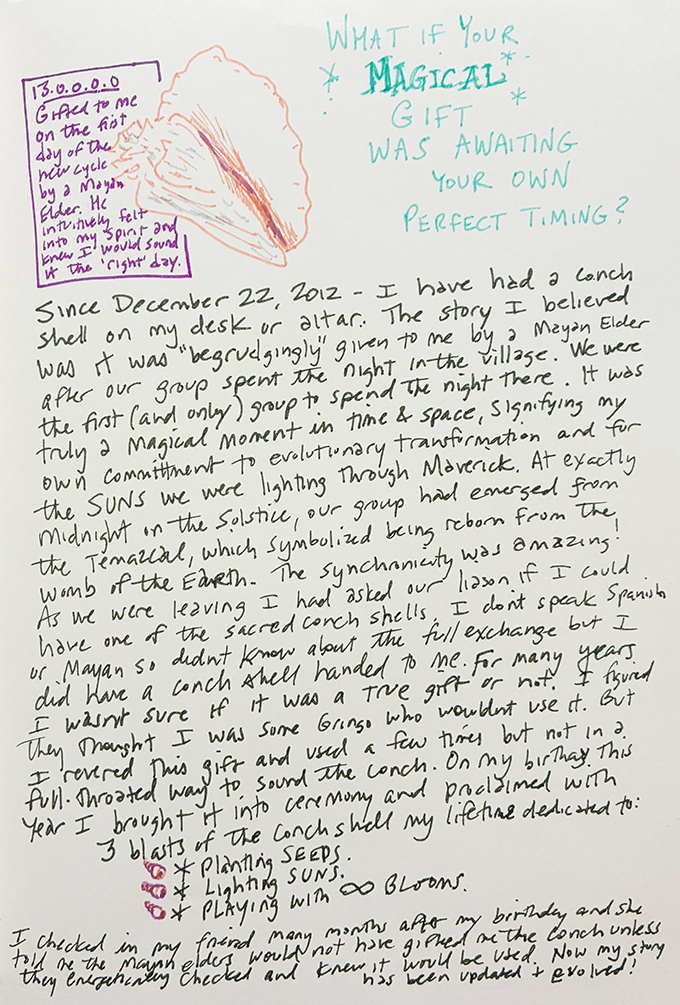 WHAT IF YOUR
* MAGICAL *
GIFT *
WAS AWAITING
YOUR OWN
PERFECT TIMING?
13.0.0.0.0
Gifted to me
on the first
day of the
new cycle
by a Mayan
Elder. He
intuitively felt
into my Spirit and
knew I would sound
it the 'right' day.
Since December 22, 2012 - I have had a conch
shell on my desk or altar. The story I believed
was it was "begrudgingly" given to me by a Mayan Elder
after our group spent the night in the village. We were
the first (and only) group to spend the night there. It was
truly a Magical Moment in time & space, signifying my
own commitment to evolutionary transformation and for
the SUNS we were lighting through Maverick. At exactly
midnight on the Solstice, our group had emerged from
the Temazcal, which symbolized being reborn from the
womb of the Earth. The synchronicity was amazing!
As we were leaving I had asked our liason if I could
have one of the sacred conch shells. I don't speak Spanish
or Mayan so didn't know about the full exchange but I
did have a conch shell handed to me. For many years
I wasn't sure if it was a TRUE gift or not. I figured
they thought I was some Gringo who wouldn't use it. But
I revered this gift and used a few times but not in a
full-throated way to sound the conch. On my birthday this
year I brought it into ceremony and proclaimed with
3 blasts of the conch shell my lifetime dedicated to:
* Planting SEEDS.
* Lighting SUNS.
* PLAYING with ∞ BLOOMS.
I checked in my friend many months after my birthday and she
told me the Mayan elders would not have gifted me the conch unless
they energetically checked and knew it would be used. Now my story
has been updated + evolved!